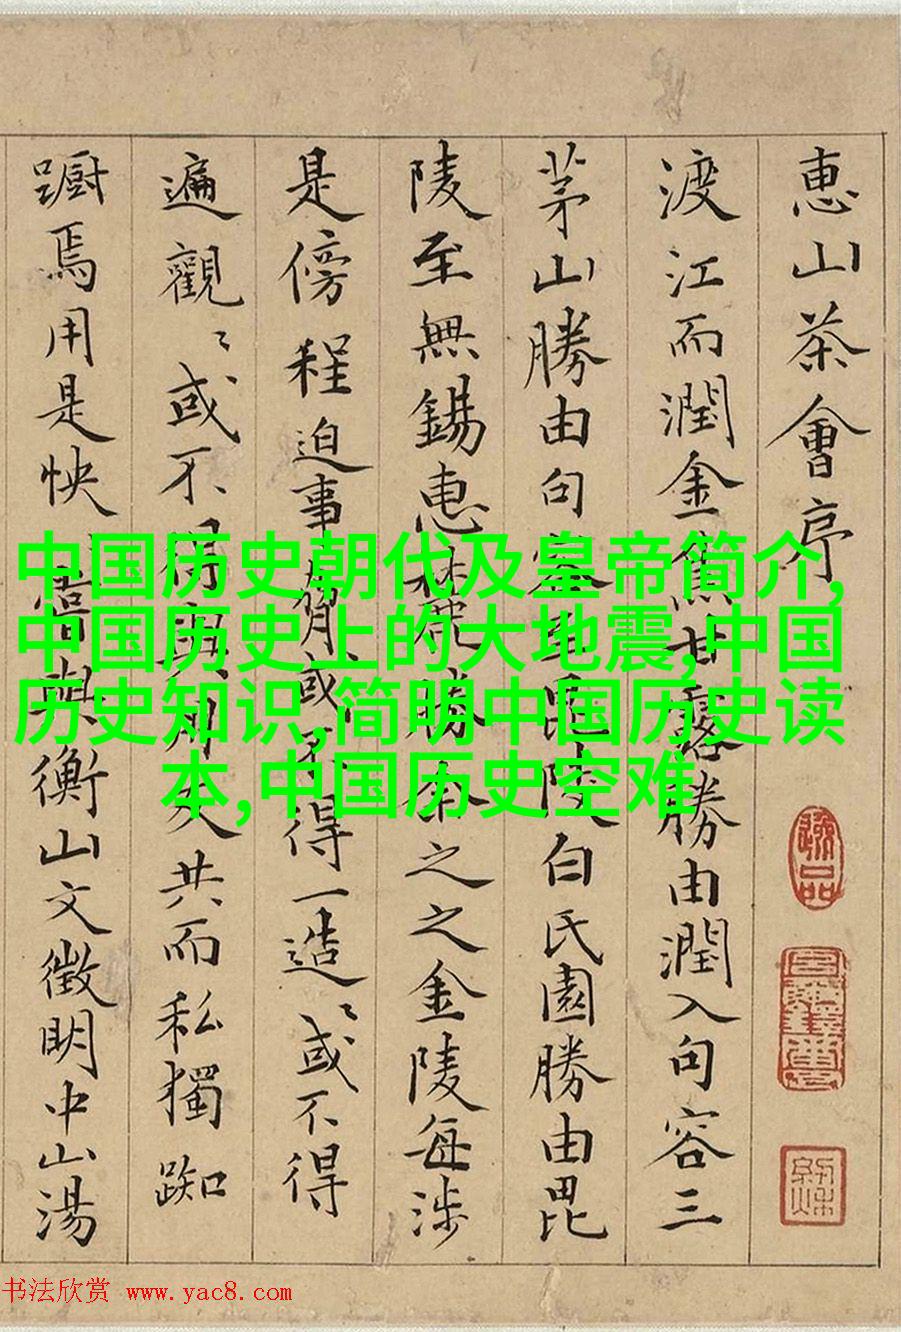 惠山茶會序
渡江而潤金焦甘露勝由潤入句容三
茅山勝由句容至毘陵白氏園勝由毘
陵至無錫惠麓勝余之之金陵每涉
是傍程迫事或不得一造〻或不得
遍觀〻或不得與友共而私獨踟
躕焉用是怏嘗與衡山文徵明中山湯
中国历史朝代及皇帝简介,
中国历史上的大地震,中国
历史知识,简明中国历史读
本,中国历史空难
书法欣赏 www.yac8.com